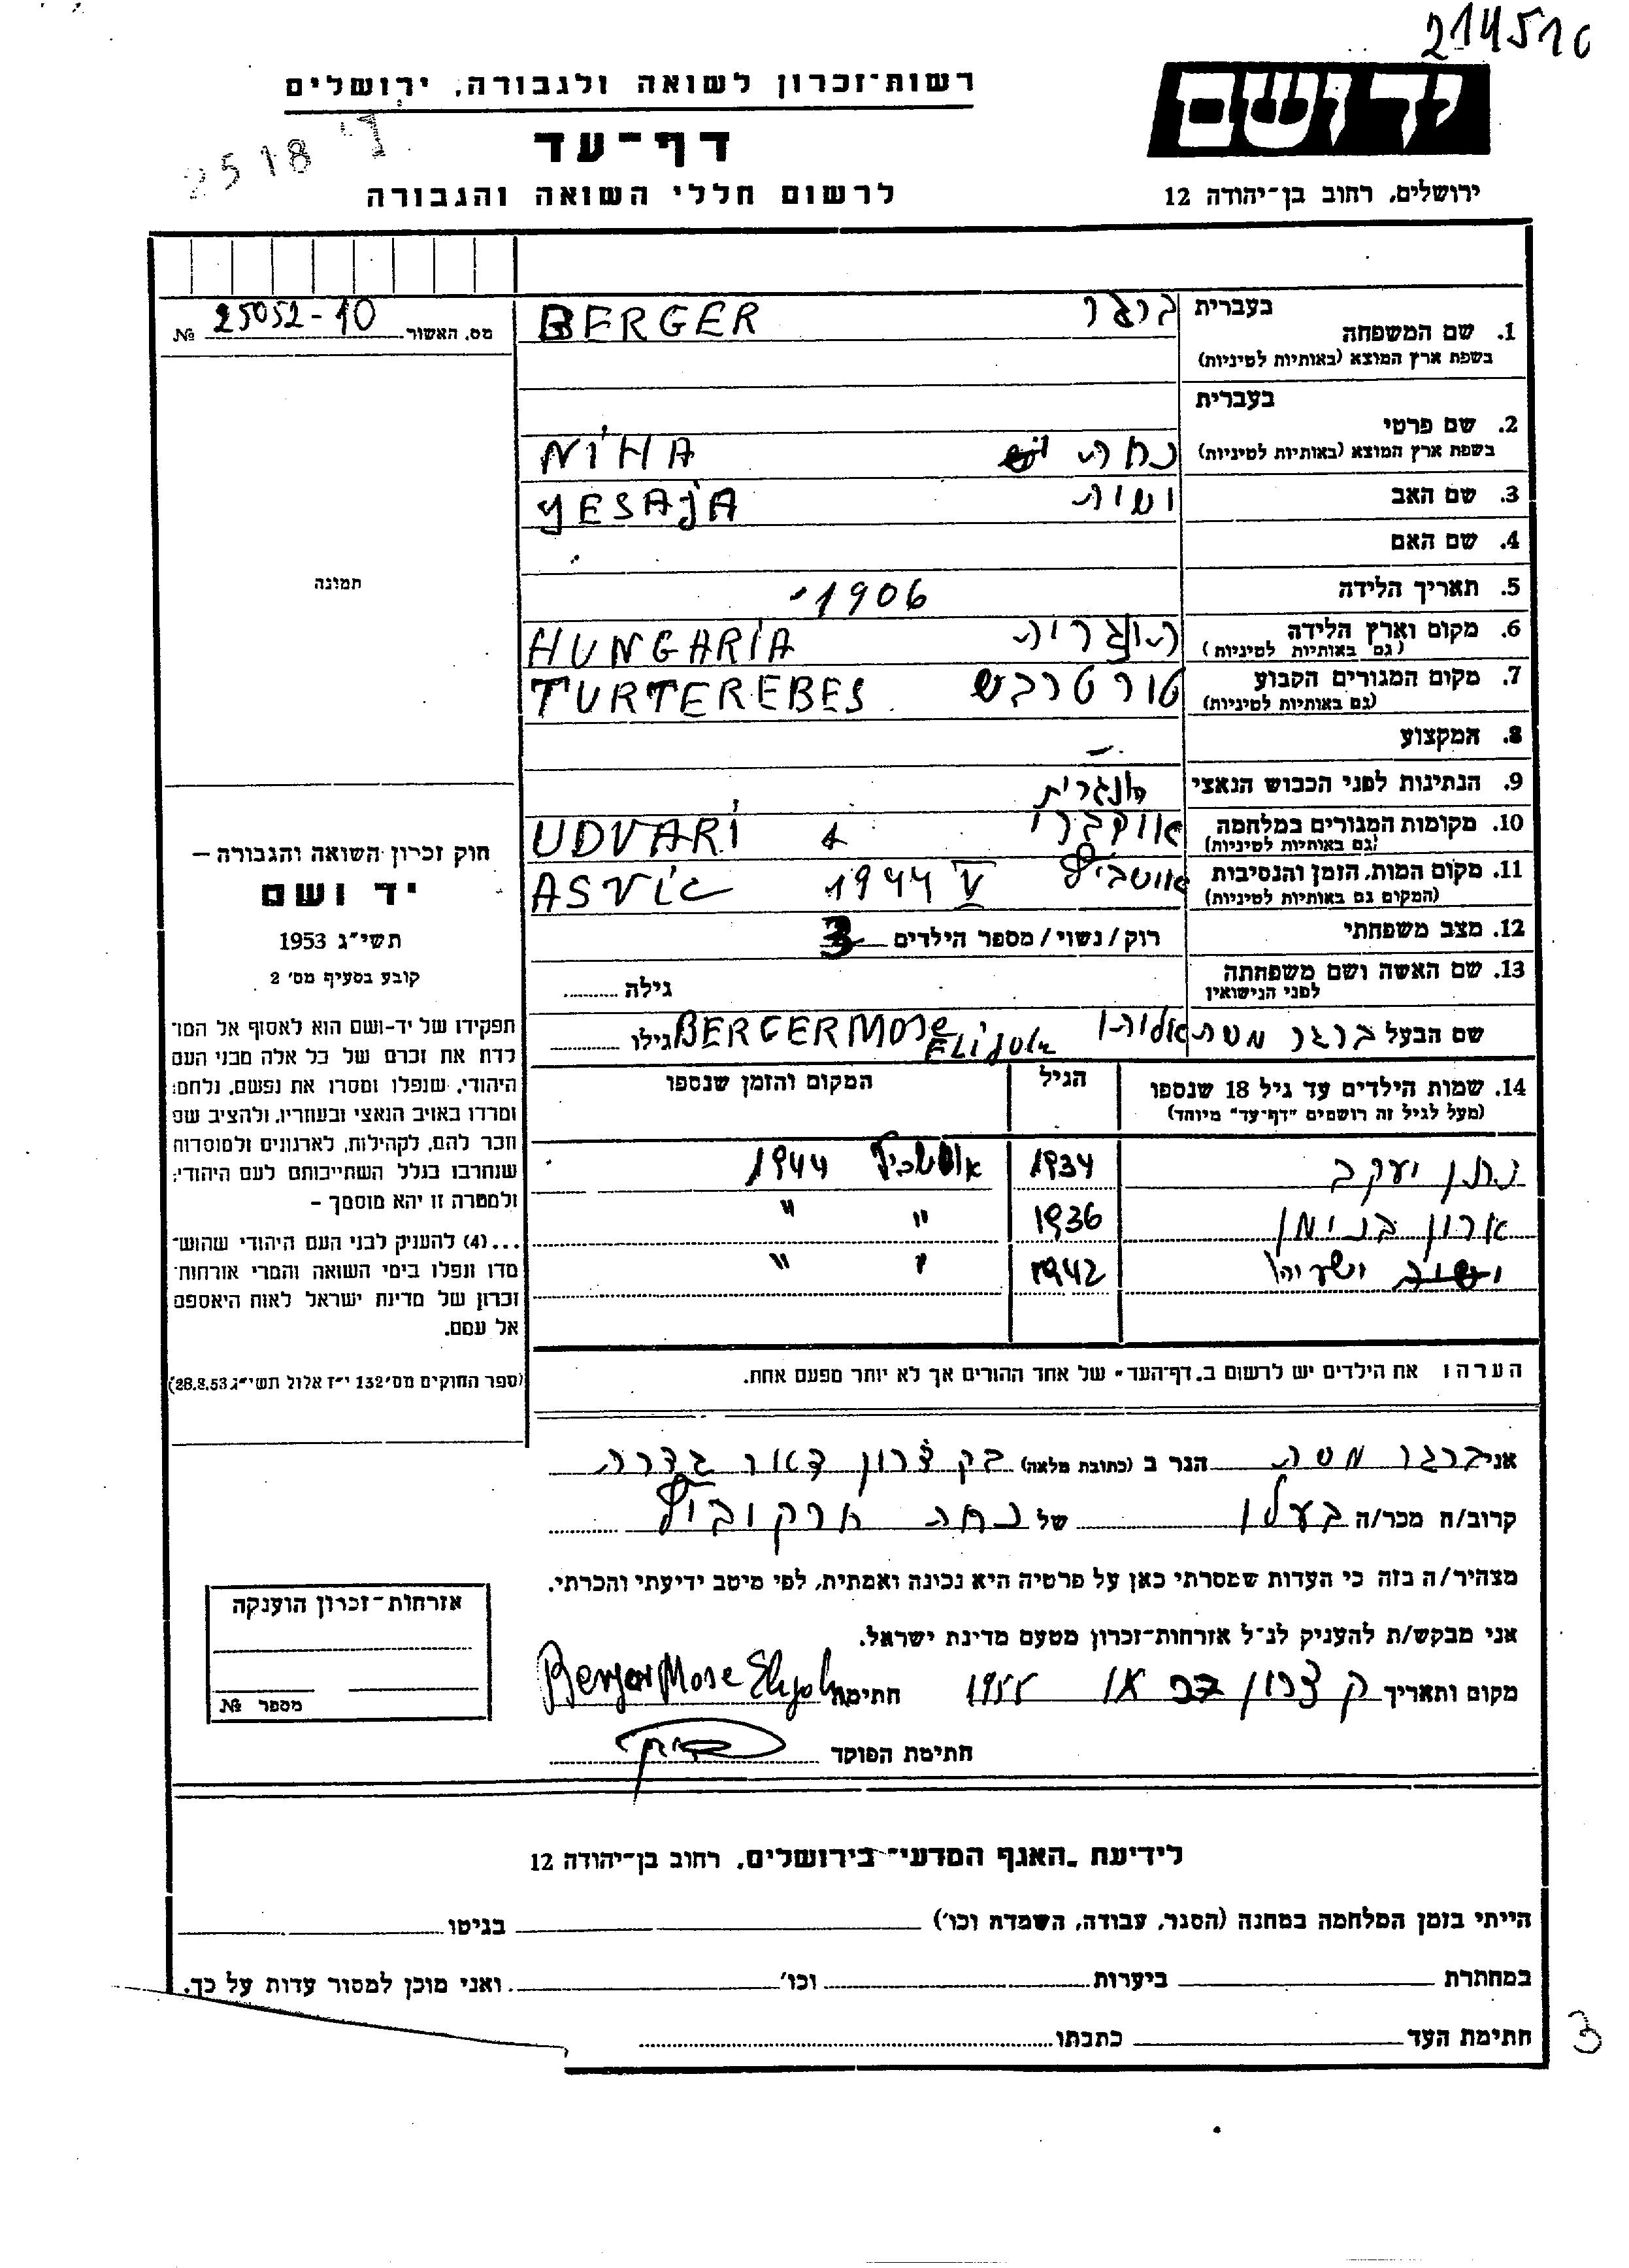 214510
יד ושם
רשות־זכרון לשואה ולגבורה, ירושלים
דף־עד
2518
ירושלים, רחוב בן־יהודה 12
לרשום חללי השואה והגבורה
מס. האשור 25052-10 №
בעברית ברגר BERGER
1. שם המשפחה
בשפת ארץ המוצא (באותיות לטיניות)
בעברית
2. שם פרטי
בשפת ארץ המוצא (באותיות לטיניות) נחה NIHA
3. שם האב YESAJA
4. שם האם
5. תאריך הלידה 1906
6. מקום וארץ הלידה הונגריה HUNGARIA
(גם באותיות לטיניות)
7. מקום המגורים הקבוע טורטרבש TURTEREBES
(גם באותיות לטיניות)
8. המקצוע –
9. הנתינות לפני הכבוש הנאצי הונגרית
10. מקומות המגורים במלחמה UDVARI
(גם באותיות לטיניות)
11. מקום המות, הזמן והנסיבות אושביץ 1944 V ASVIC
(המקום גם באותיות לטיניות)
12. מצב משפחתי רוק/נשוי/מספר הילדים 3
13. שם האשה ושם משפחתה גילה
לפני הנישואין
שם הבעל ברגר משה אליהו BERGER MOSE ELIJOLE גילו
14. שמות הילדים עד גיל 18 שנספו הגיל המקום והזמן שנספו
(מעל לגיל זה רושמים "דף־עד" מיוחד)
נתן יעקב 1934 אושביץ 1944
ארון בנימן 1936 " "
ישעיהו 1942 " "
הערה: את הילדים יש לרשום ב„דף־העד" של אחד ההורים אך לא יותר מפעם אחת.
תמונה
חוק זכרון השואה והגבורה –
יד ושם
תשי"ג 1953
קובע בסעיף מס' 2
תפקידו של יד-ושם הוא לאסוף אל המו־
לדת את זכרם של כל אלה מבני העם
היהודי, שנפלו ומסרו את נפשם, נלחמו
ומרדו באויב הנאצי ובעוזריו, ולהציב שם
וזכר להם, לקהילות, לארגונים ולמוסדות
שנחרבו בגלל השתייכותם לעם היהודי;
ולמטרה זו יהא מוסמך –
...(4) להעניק לבני העם היהודי שהוש־
מדו ונפלו בימי השואה והמרי אזרחות־
זכרון של מדינת ישראל לאות היאספם
אל עמם.
(ספר החוקים מס' 132 י"ז אלול תשי"ג 28.8.53)
אני ברגר משה הגר ב (כתובת מלאה) בק צרון דאר גדרה
קרוב/ה מכר/ה בעלו של נחה ארקוביץ
מצהיר/ה בזה כי העדות שמסרתי כאן על פרטיה היא נכונה ואמתית, לפי מיטב ידיעתי והכרתי.
אני מבקש/ת להעניק לנ"ל אזרחות־זכרון מטעם מדינת ישראל.
מקום ותאריך ק צרון חתימה Berger Mose
חתימת הפוקד
אזרחות־זכרון הוענקה
מספר №
לידיעת „האגף המדעי" בירושלים, רחוב בן־יהודה 12
הייתי בזמן המלחמה במחנה (הסגר, עבודה, השמדה וכו') בגיטו
במחתרת ביערות וכו' ואני מוכן למסור עדות על כך.
חתימת העד כתבתו
3